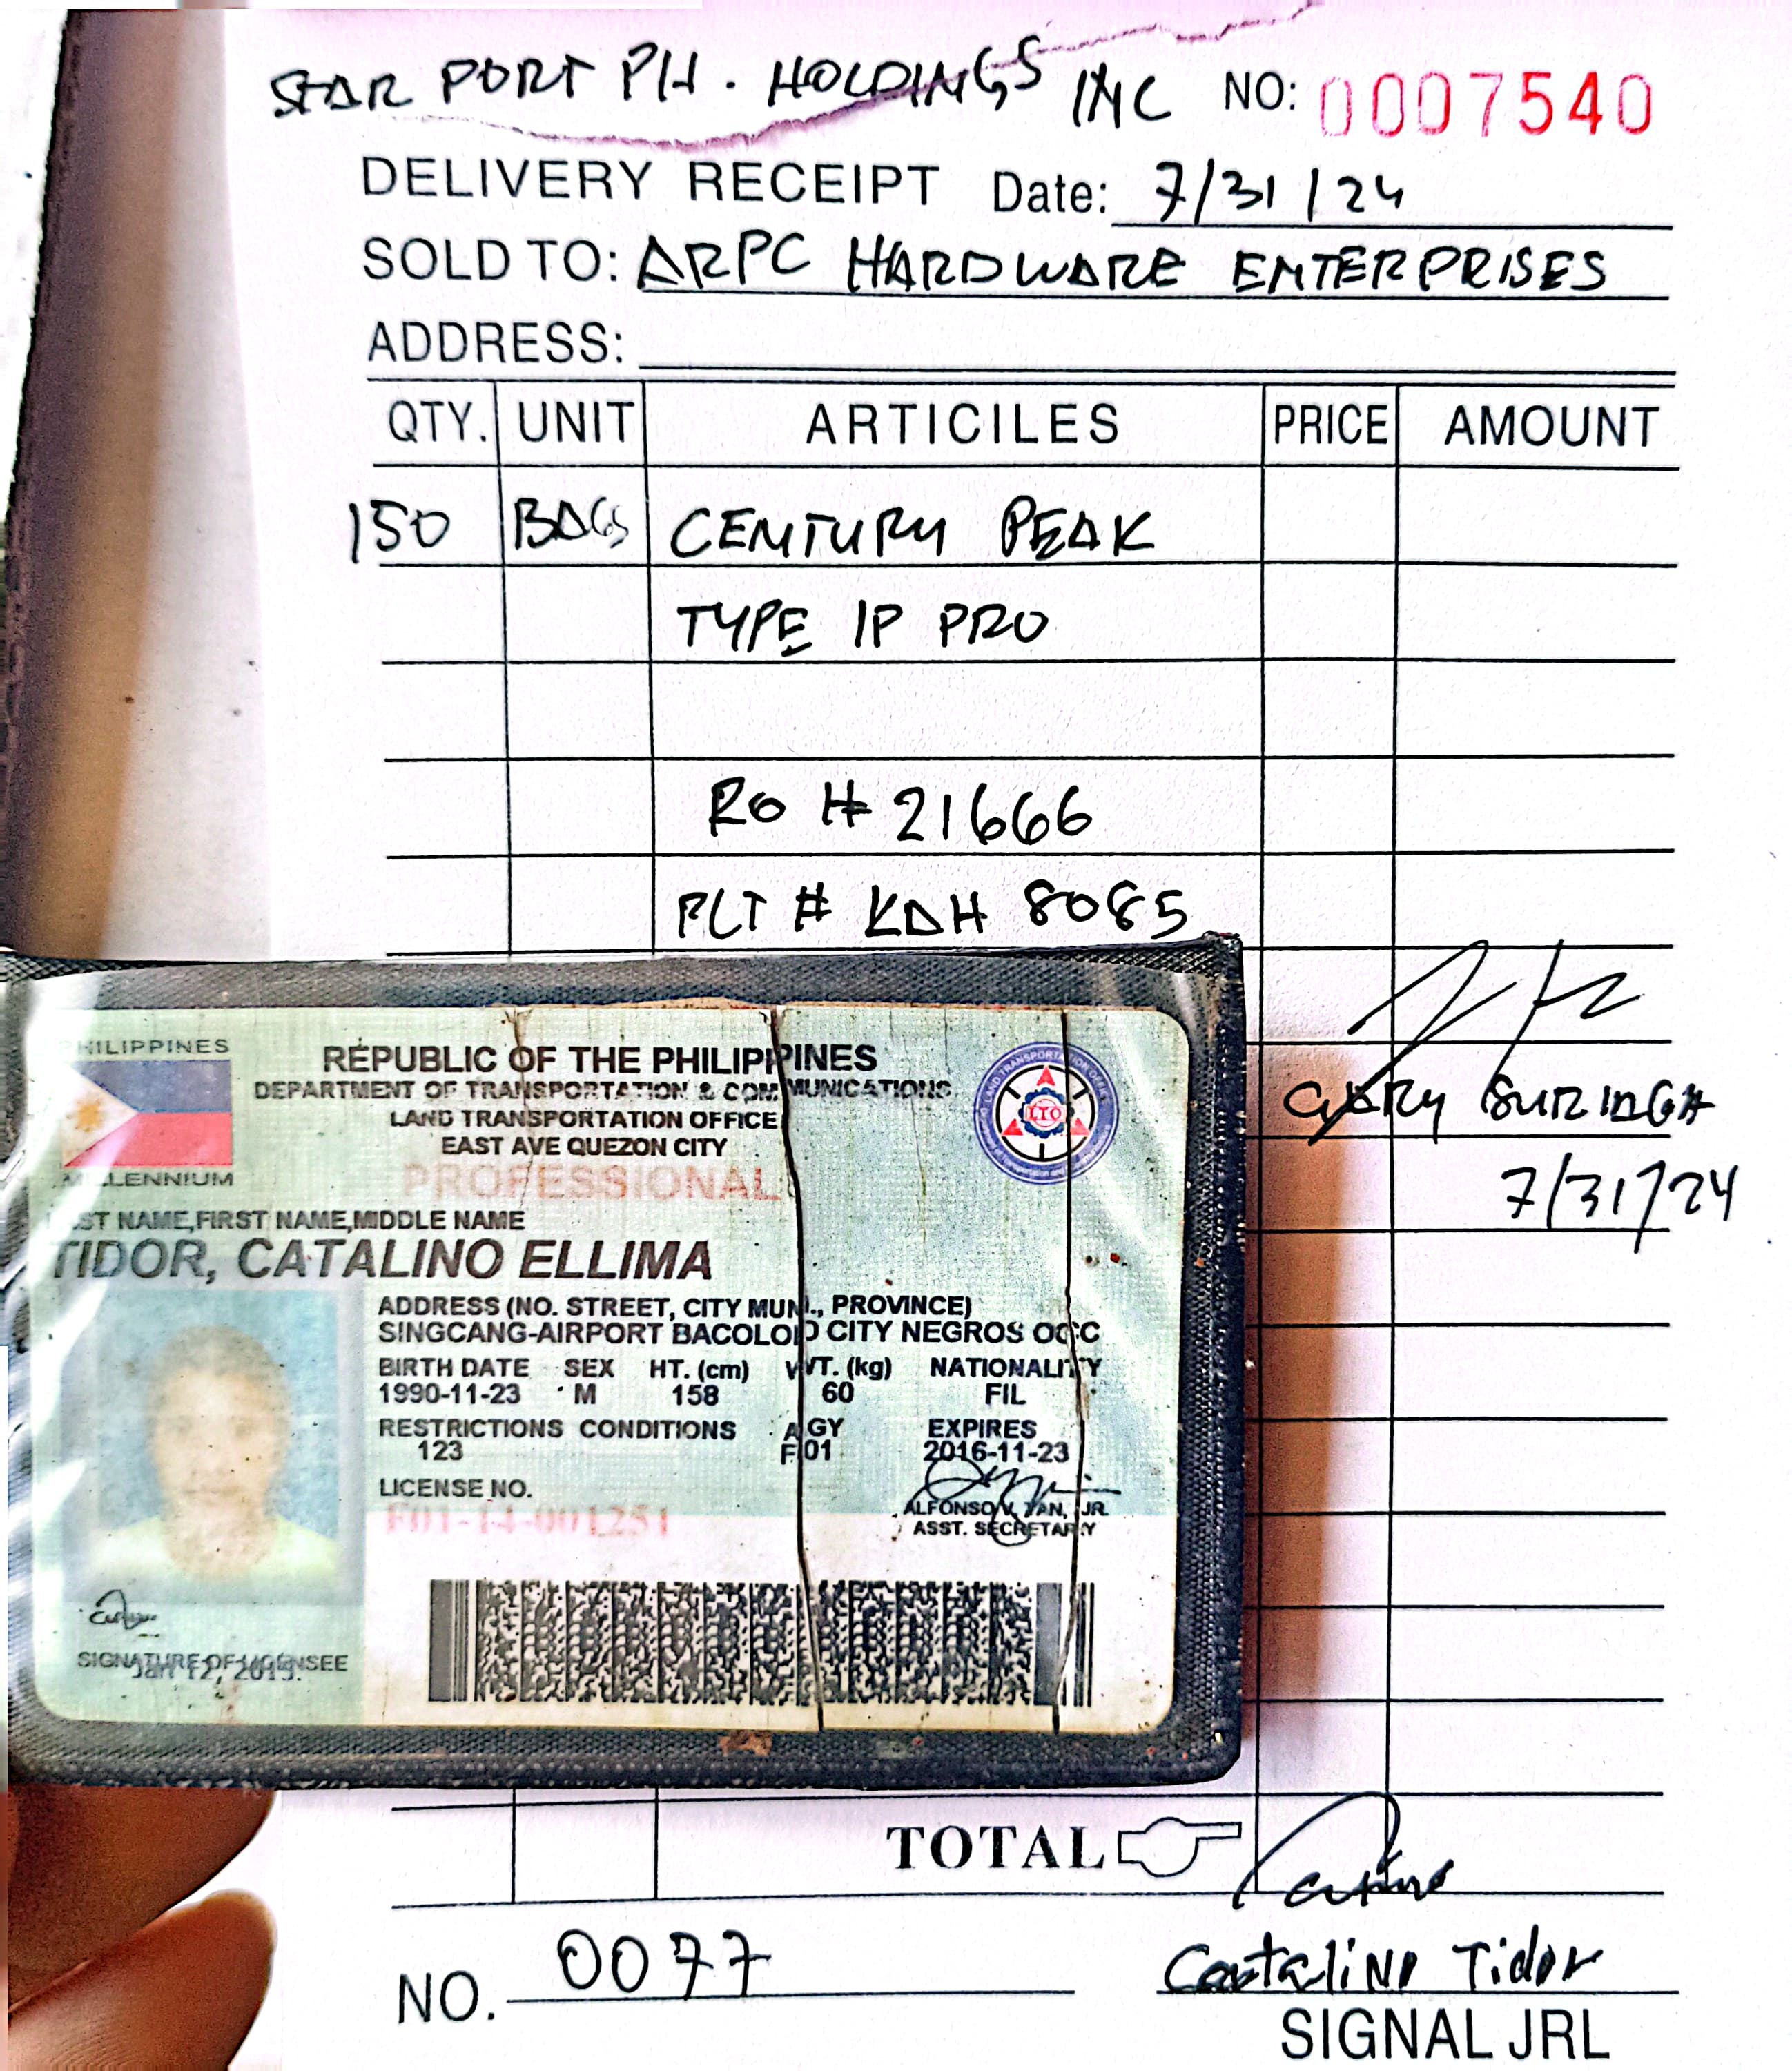 STAR PORT PH. HOLDINGS INC NO: 0007540
DELIVERY RECEIPT Date: 7/31/24
SOLD TO: ARPC HARDWARE ENTERPRISES
ADDRESS:
QTY. UNIT ARTICILES PRICE AMOUNT
150 BAGS CENTURY PEAK
TYPE 1P PRO
RO # 21666
PLT # KAH 8085
GARY
7/31/24
PHILIPPINES
MILLENNIUM
REPUBLIC OF THE PHILIPPINES
DEPARTMENT OF TRANSPORTATION & COMMUNICATIONS
LAND TRANSPORTATION OFFICE
EAST AVE QUEZON CITY
PROFESSIONAL
LTO
LAST NAME,FIRST NAME,MIDDLE NAME
TIDOR, CATALINO ELLIMA
ADDRESS (NO. STREET, CITY MUN., PROVINCE)
SINGCANG-AIRPORT BACOLOD CITY NEGROS OCC
BIRTH DATE SEX HT. (cm) WT. (kg) NATIONALITY
1990-11-23 M 158 60 FIL
RESTRICTIONS CONDITIONS AGY EXPIRES
123 F01 2016-11-23
LICENSE NO.
F01-14-001251
ALFONSO V. TAN, JR.
ASST. SECRETARY
SIGNATURE OF LICENSEE
TOTAL
NO. 0077
Catalino Tidor
SIGNAL JRL